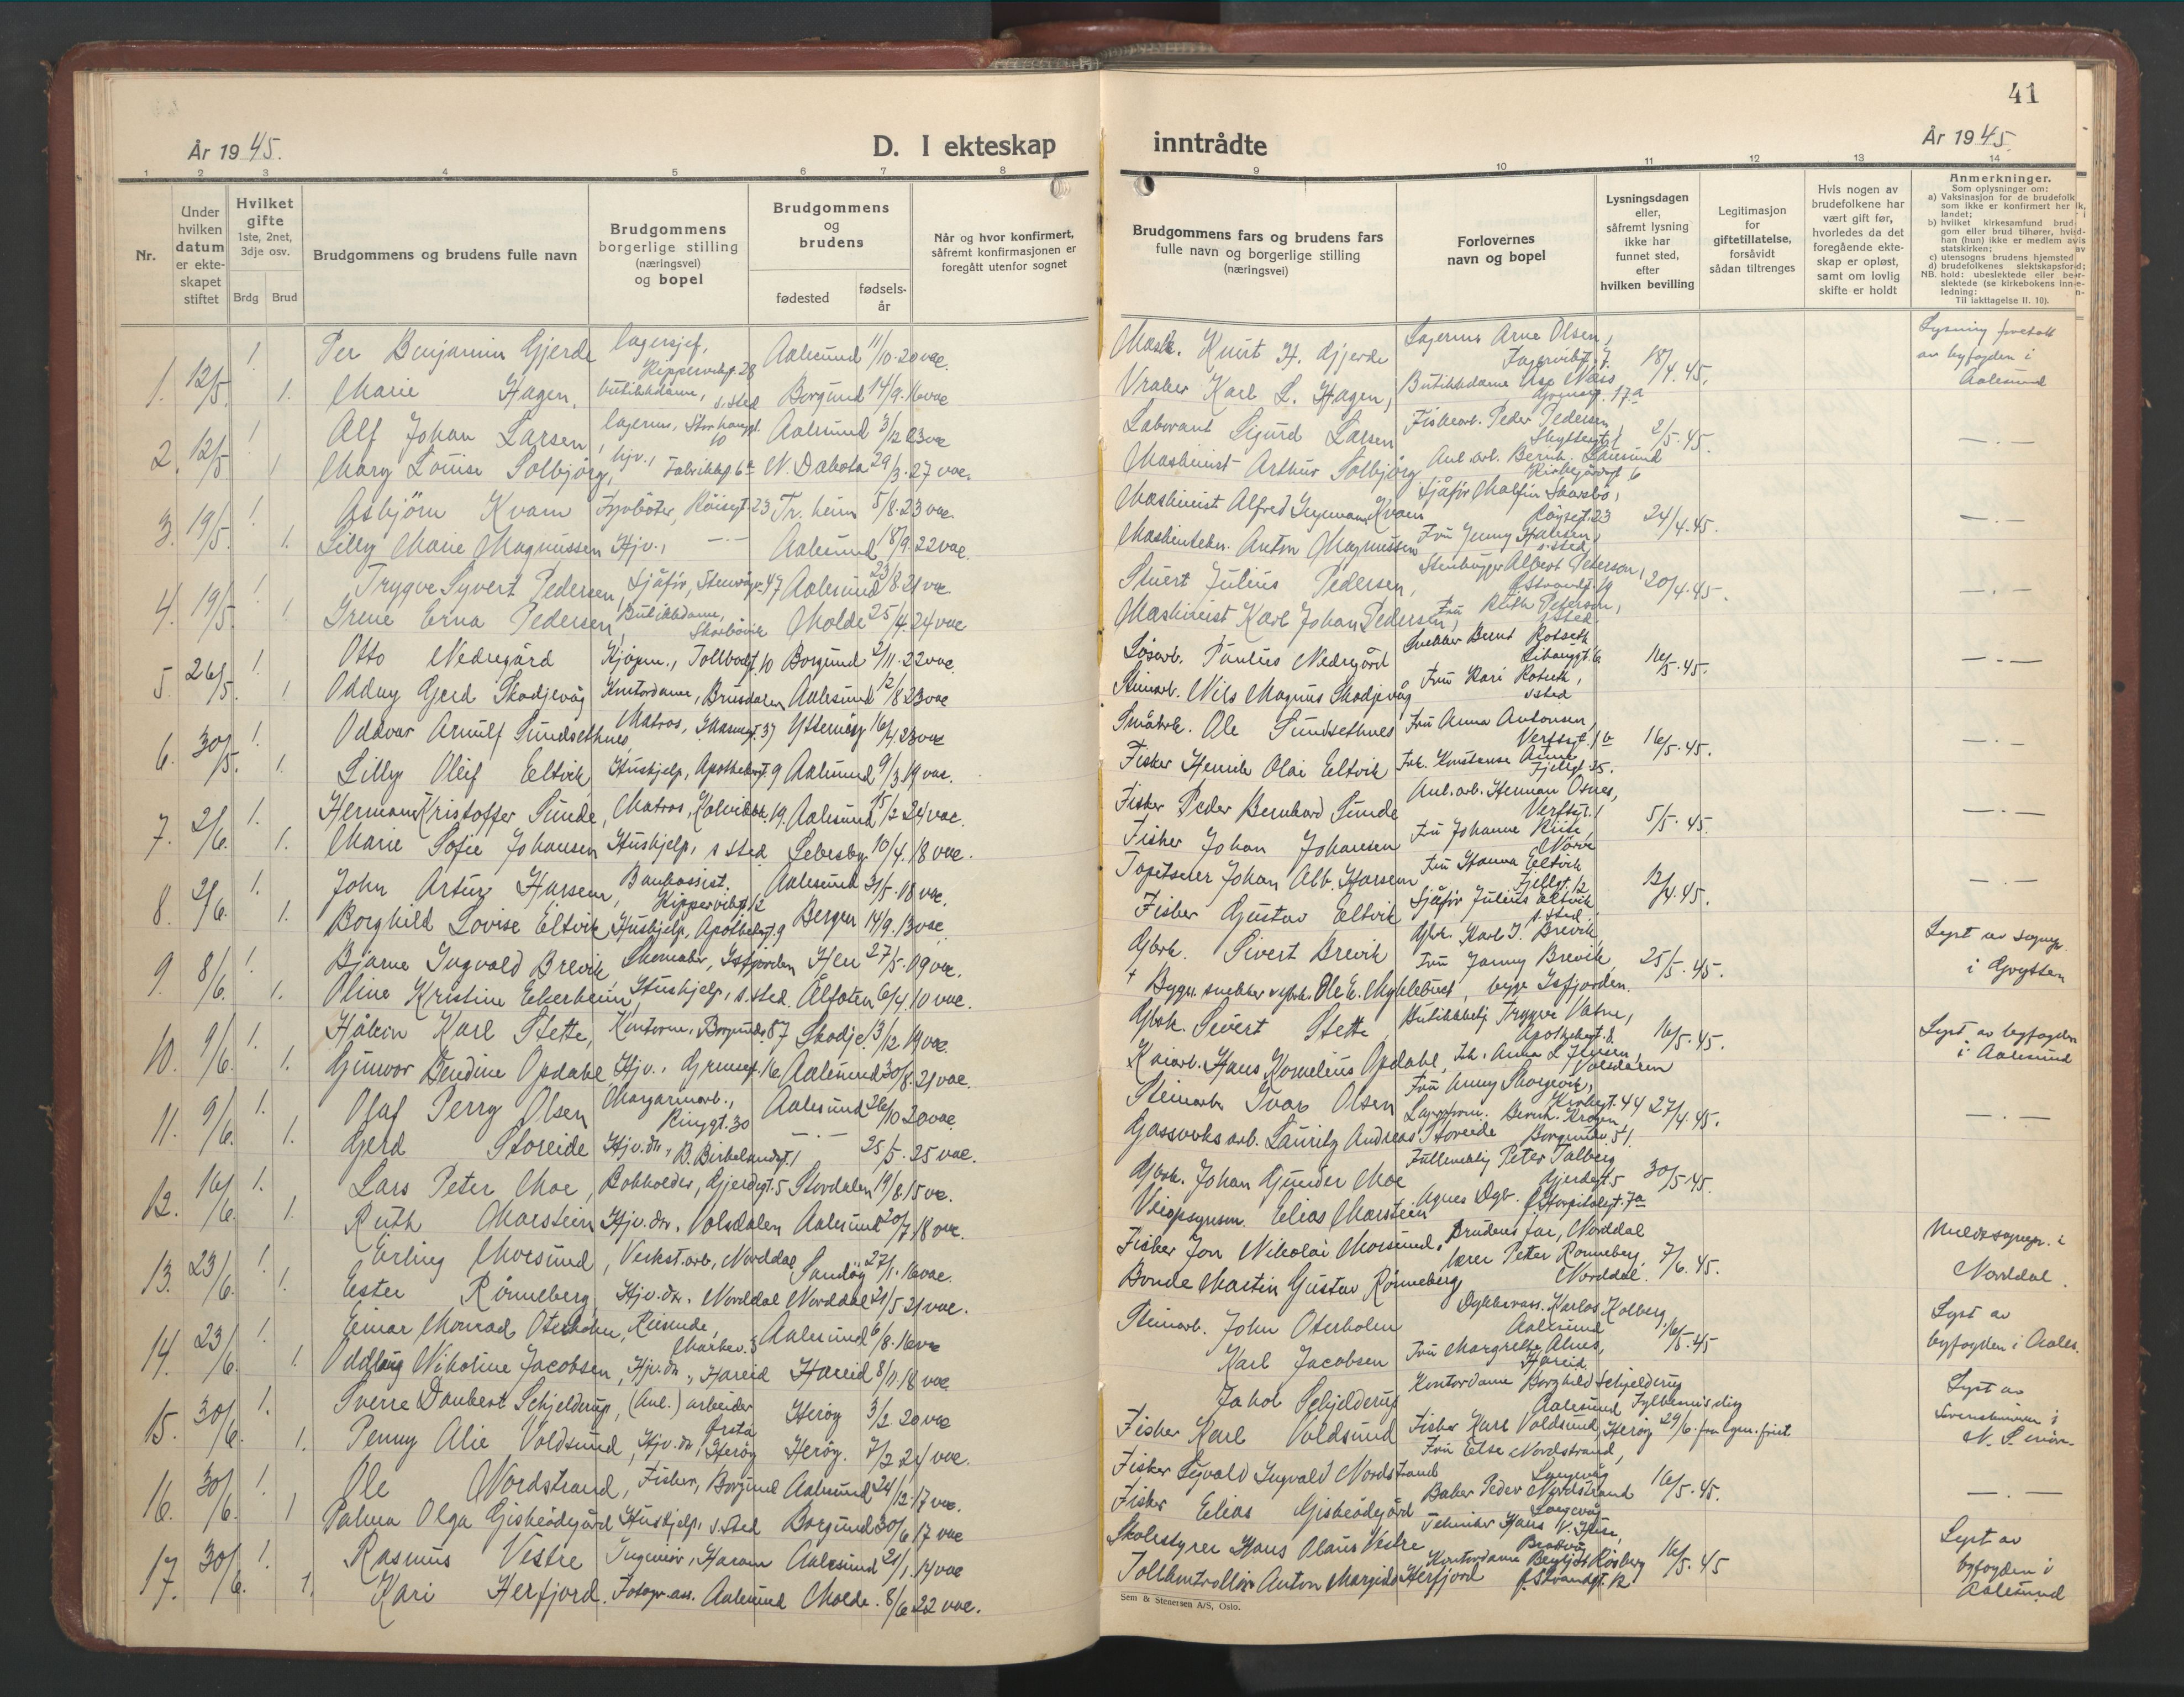 41
År 1945.
D. I ekteskap
inntrådte
År 1945.
1 2 3 4 5 6 7 8
9 10 11 12 13 14
Nr.
Under hvilken datum er ekte-skapet stiftet
Hvilket gifte
1ste, 2net, 3dje osv.
Brdg Brud
Brudgommens og brudens fulle navn
Brudgommens borgerlige stilling (næringsvei) og bopel
Brudgommens og brudens
fødested
fødsels-år
Når og hvor konfirmert, såfremt konfirmasjonen er foregått utenfor sognet
Brudgommens fars og brudens fars fulle navn og borgerlige stilling (næringsvei)
Forlovernes navn og bopel
Lysningsdagen eller, såfremt lysning ikke har funnet sted, efter hvilken bevilling
Legitimasjon for giftetillatelse, forsåvidt sådan tiltrenges
Hvis nogen av brudefolkene har vært gift før, hvorledes da det foregående ekte-skap er opløst, samt om lovlig skifte er holdt
Anmerkninger.
Som oplysninger om:
a) Vaksinasjon for de brudefolk som ikke er konfirmert her i landet;
b) hvilket kirkesamfund brud-gom eller brud tilhører, hvis han (hun) ikke er medlem av statskirken;
c) utensogns brudens hjemsted
d) brudefolkenes slektskapsfor-
NB. hold: ubeslektede eller be-slektede (se kirkebokens inn-ledning:
Til iakttagelse II. 10).
1. 12/5. 1. Per Benjamin Gjerde Lagersjef, Kippervikgt. 28 Aalesund 11/10. 20 vac. Mask. Knut H. Gjerde Lagerm. Arne Olsen, 18/4. 45. Lysning foretatt av byfogden i Aalesund
1. Marie Hagen, butikkdame, s.sted Borgund 14/9. 16 vac Vraker Karl L. Hagen, Butikkdame Åse Næss 17a
2. 12/5 1 Alf Johan Larsen, lagerm., Storhauggt. 10 Aalesund 3/12 23 vac Laborant Sigurd Larsen Fiskearb. Peder Pedersen 2/5. 45. — . —
1 Mary Louise Solbjörg, hjv., Fabrikkgt. 6a N. Dakota 29/3. 27 vac. Maskinist Arthur Solbjörg Anl. arb. Bernh. Kirkegårdsgt. 6
3. 19/5. 1. Asbjörn Kvam Fyrböter, Röisegt. 23 Tr. heim 5/8. 23 vac Maskinist Alfred Ingemann Kvam Sjåför Malfin Skarbö, Röysegt. 23 24/4. 45. — . —
1. Lilly Marie Magnussen Hjv., — . — Aalesund 18/9. 22 vac. Maskintekn. Anton Magnussen Fru Jenny Hansen, s.sted
4. 19/5. 1 Trygve Syvert Pedersen, Sjåför, Stenvågv. 47 Aalesund 23/8 21 vac Stuert Julius Pedersen, Stenhugger Albert Peterson, 20/4. 45. — . —
1 Irene Erna Pedersen, Butikkdame, Skarbövik Molde 25/4. 24 vac Maskinist Karl Johan Pedersen, Fru Ruth Peterson, s.sted.
5. 26/5. 1. Otto Nedregård Kjöpm., Tollbodgt. 10 Borgund 2/11. 22 vac. Lösarb. Paulus Nedregård Snekker Bernt Rotseth 16/5. 45. — . —
1 Oddny Gjerd Skodjevåg Kontordame, Brusdalen Aalesund 12/8 23 vac Stenarb. Nils Magnus Skodjevåg Fru Kari Rotseth, s.sted
6. 30/5. 1. Oddvar Arnulf Sundsethnes, Matros, 37 Ytterøy 16/4. 23 vac Småbrk. Ole Sundsethnes Fru Anna Antonsen, Verftsgt. 1b 16/5. 45. — . —
1. Lilly Oleif Eltvik Hushjelp, Apothekergt. 9 Aalesund 9/3 19 vac. Fisker Henrik Olai Eltvik Frk. Konstanse Aune Fjellgt. 25.
7. 2/6. 1. Herman Kristoffer Sunde, Matros, 19. Aalesund 15/2 24 vac. Fisker Peder Bernhard Sunde Anl. arb. Herman Osnes, Verftsgt. 1 5/5. 45. — . —
1. Marie Sofie Johansen Hushjelp, s.sted Lebesby 10/4. 18 vac. Fisker Johan Johansen Fru Johanne Riise, Nörve
8. 2/6. 1. John Artur Harsem, Bankassist. Kippervikgt. 12 Aalesund 31/5. 18 vac. Tapetserer Johan Alb. Harsem Fru Hanna Eltvik Fjellgt. 12 12/4. 45. — . —
1. Borghild Lovise Eltvik Hushjelp, Apothekergt. 9 Bergen 14/9. 13 vac. Fisker Gustav Eltvik Sjåför Julius Eltvik s.sted.
9. 8/6. 1. Bjarne Ingvald Brevik Skomaker, Isfjorden Hen 27/5. 09 vac. Gbrk. Sivert Brevik Gbrk. Karl J. Brevik 25/5. 45. Lyst av sognepr. i Grytten
1. Oline Kristine Eikerheim, Hushjelp, s.sted. Ålfoten 6/4. 10 vac. + Bygn. snekker & gbrk. Ole E. Myklebust, begge Isfjorden. Fru Jenny Brevik
10. 9/6. 1. Håkon Karl Stette, Kontorm., Borgundv. 87 Skodje 13/12 19 vac. Gbrk. Sivert Stette Butikkbetj. Trygve Vatne, Apothekergt. 8. 16/5. 45. Lyst av byfogden i Aalesund
1. Gunvor Bendine Opdahl Hjv., Grensegt. 16 Aalesund 30/8. 21 vac. Kaiarb. Hans Kornelius Opdahl, Frk. Anna L. Iversen, Volsdalen
11. 9/6. 1. Olaf Perry Olsen Margarinarb., Ringgt. 30 Aalesund 26/10 20 vac. Steinarb. Ivar Olsen Fru Anny Skorgevik, Kirkegt. 44 27/4. 45. — . —
1. Gerd Storeide Hjv.dtr., B. Birkelandsgt. 1 — . — 25/5. 25 vac. Gassverksarb. Lauritz Andreas Storeide Bernh. Krogen Borgundv. 51.
12. 16/6. 1. Lars Peter Moe, Bokholder, Gjerdegt. 5 Stordalen 19/8. 15 vac. Gbrk. Johan Gunder Moe Fullmektig Peter Talberg Gjerdegt. 5 30/5. 45.
1. Ruth Marstein Hjv.dtr., Volsdalen Aalesund 20/7. 18 vac. Veiopsynsm. Elias Marstein Agnes Dyb. Hospitalsgt. 7a
13. 23/6. 1. Erling Morsund, Verkst.arb., Norddal Sandöy 27/1. 16 vac. Fisker Jon Nikolai Morsund, Brudens far, Norddal 7/6. 45. Meldt sognepr. i Norddal.
1. Ester Rönneberg, Hjv.dtr. Norddal Norddal 21/5 21 vac. Bonde Martin Gustav Rönneberg, lærer Peter Rönneberg Norddal.
14. 23/6. 1. Einar Monrad Oterholm, Reisende, Aalesund 6/8. 16 vac Steinarb. John Oterholm Dykkerass. Karlos Kolberg, Aalesund 16/5. 45 Lyst av byfogden i Aales.
1. Oddlaug Nikoline Jacobsen, Hjv.dtr., Hareid Hareid 8/11. 18 vac. Karl Jacobsen Fru Margrethe Alnes, Hareid.
15. 30/6. 1. Sverre Daubert Schjelderup, (Anl.) arbeider Örsta Heröy 3/2. 20 vac Jakob Schjelderup Kontordame Borghild Schjelderup Aalesund Fylkesmis.dig 29/6. fra lysn. frist Lyst av
1. Penny Alie Voldsund, Hjv.dtr., Heröy Heröy. 7/2 24 vac. Fisker Karl Voldsund Fisker Karl Voldsund, Heröy
16. 30/6. 1. Ole Nordstrand, Fisker, Borgund Aalesund 24/12. 17 vac. Fisker Sigvald Ingvald Nordstrand Fru Else Nordstrand, Langevåg 16/5. 45. — . —
1 Palma Olga Gisbeødegård Hushjelp, s.sted Borgund 30/6 17 vac Fisker Elias Gisbeødegård Baker Peder Nordstrand Langevåg
17. 30/6. 1. Rasmus Vestre Ingeniör, Haram Aalesund 21/1. 14 vac Skolestyrer Hans Olaus Vestre Tekniker Hans V. Brattvåg 16/5. 45 Lyst av byfogden i Aalesund
1. Kari Herfjord. Fotogr. ass. Aalesund Molde. 8/6 22 vac. Tollkontrollör Anton Margido Herfjord Kontordame Bergljot Rösberg
Sem & Stenersen A/S, Oslo.